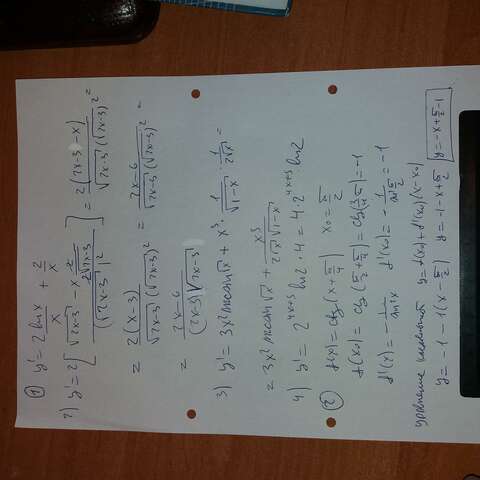 ① y' = 2 ln x / x + 2/x
2) y' = 2[ (√(2x-3) - x · 2/(2√(2x-3))) / (√(2x-3))² ] = 2(2x-3-x) / (√(2x-3) (√(2x-3))²) =
= 2(x-3) / (√(2x-3) (√(2x-3))²) = (2x-6) / (√(2x-3) (√(2x-3))²) =
= (2x-6) / ((2x-3)√(2x-3))
3) y' = 3x² arcsin √x + x³ · 1/√(1-x) · 1/(2√x) =
= 3x² arcsin √x + x³/(2√x √(1-x))
4) y' = 2^(4x+5) ln 2 · 4 = 4 · 2^(4x+5) · ln 2
② f(x) = ctg(x + π/4) x₀ = π/2
f(x₀) = ctg(π/2 + π/4) = ctg(3π/4) = -1
f'(x) = - 1/sin²x f'(x₀) = - 1/sin² π/2 = -1
уравнение касательной y = f(x₀) + f'(x₀)(x-x₀)
y = -1 - 1(x - π/2) y = -1 - x + π/2 y = -x + π/2 - 1